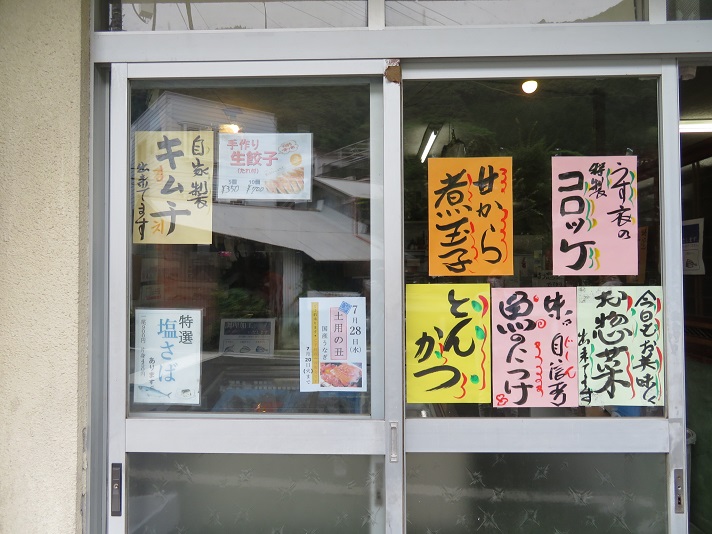 自家製
キムチ
出来てます
手作り
生餃子
5個 10個
¥350 ¥700
特選
塩さば
あります
7月28日(水)
土用の丑
国産うなぎ
7月20日
まで
甘から
煮玉子
うす衣の
特製
コロッケ
とん
かつ
味に自信有
魚のみつけ
今日もお美味しく
お惣菜
出来てます